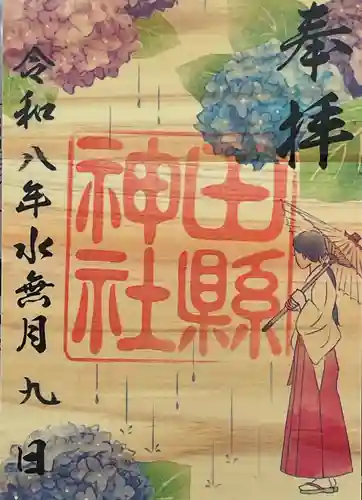 奉拝
田縣
神社
令和八年水無月九日